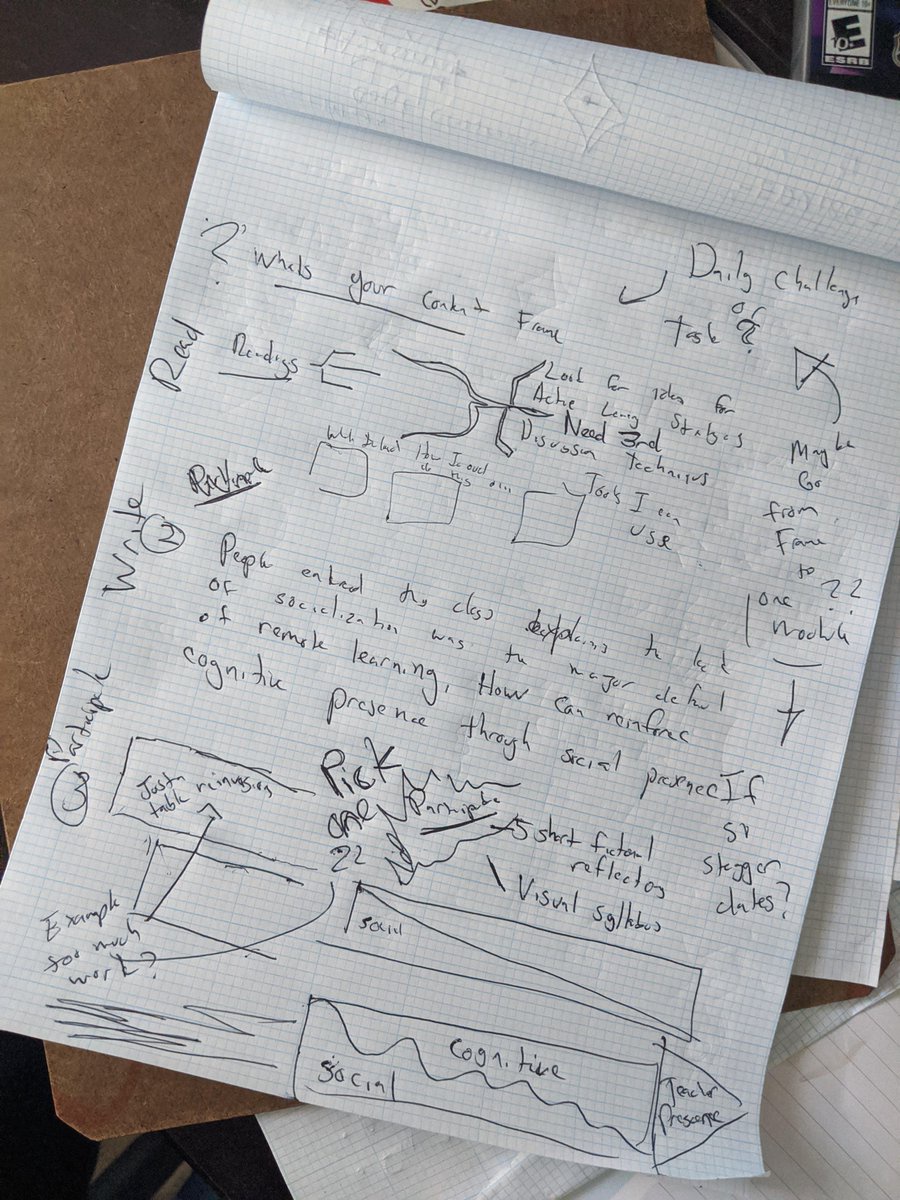 EVERYONE 10+
E
10+
ESRB
? Whats your Content Frame
Daily challenge
or
task ?
Read
Readings
Look for ideas for
Active Learning Strategies
Need 3rd
Discussion techniques
How I could
do this
Tools I can
use
Maybe
Go
from
Frame
to
??
one
module
If
so
stagger
dates?
Participate
Write
2
People entered this class explaining the lack
of socialization was the major
of remote learning, How can reinforce
cognitive presence through social presence
3
Participate
table
Pick
one
??
Participate
5 short
Visual syllabus
Example
too much
work?
social
cognitive
social
Teacher
Prescence